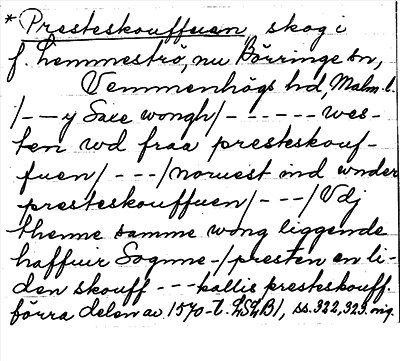 *Presteskouffuen, skog i
f. Lemmeströ, nu Börringe sn,
Vemmenhögs hd, Malm. l.
/– – y Saxe wongh/ – – – – – – wes-
ten wd fraa presteskouf-
fuen/ – – –/noruest ind wnder
presteskouffuen/ – – –/Vdj
thenne samme wong liggende
haffuer Sognne-/presten en li-
den skouff – – – kallis presteskouff.
förra delen av 1570-t. LSLB1, ss. 322, 323. orig.